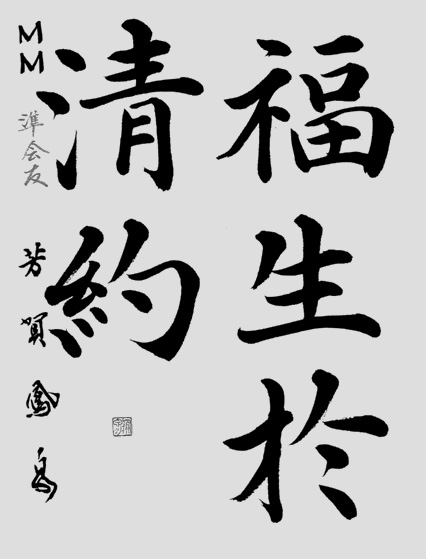 福生於
清約
MM
準会友
芳賀鳳